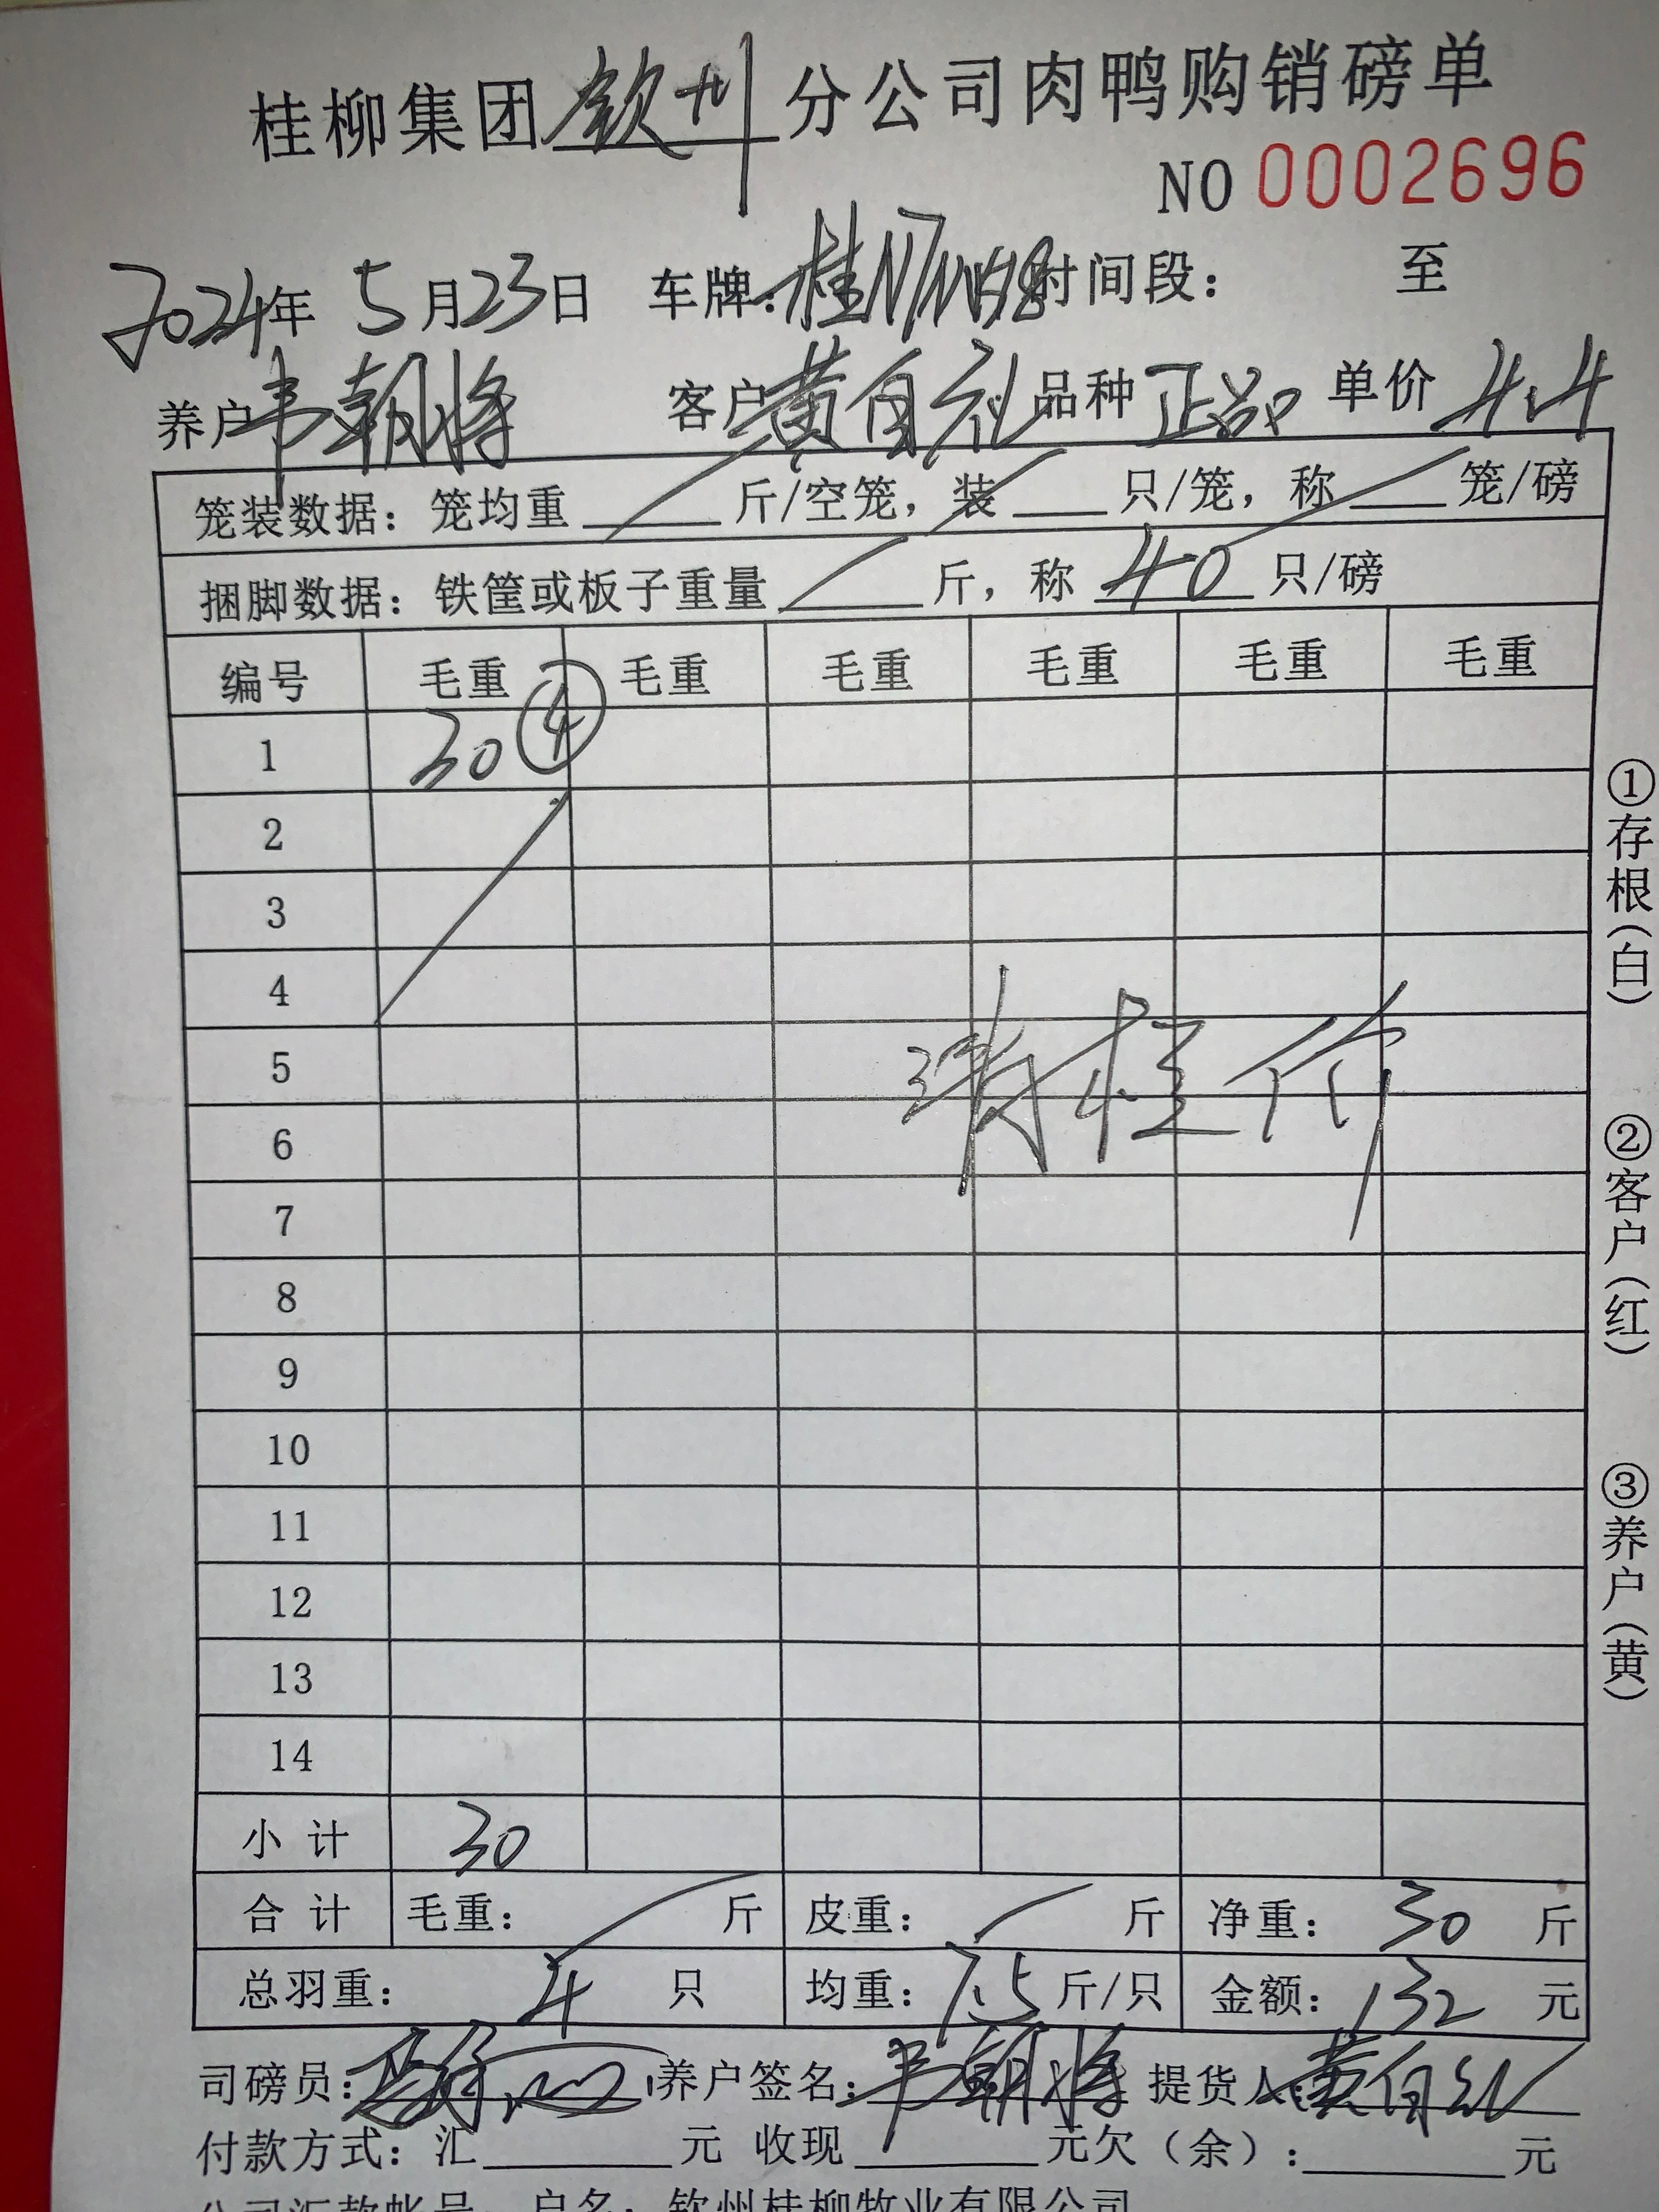 桂柳集团钦州分公司肉鸭购销磅单
NO 0002696
2024年 5月23日 车牌: 时间段: 至
养户韦朝将 客户黄自 品种 正品 单价 4.4
笼装数据: 笼均重 斤/空笼, 装 只/笼, 称 笼/磅
捆脚数据: 铁筐或板子重量 斤, 称 40 只/磅
编号 毛重 毛重 毛重 毛重 毛重 毛重
1 30 ④
2
3
4
5
6
7
8
9
10
11
12
13
14
小计 30
合计 毛重: 斤 皮重: 斤 净重: 30 斤
总羽重: 4 只 均重: 7.5 斤/只 金额: 132 元
司磅员: 养户签名: 韦朝将 提货人: 黄自
付款方式: 汇 元 收现 元欠(余): 元
公司汇款帐号: 户名: 钦州桂柳牧业有限公司
①存根(白)
②客户(红)
③养户(黄)